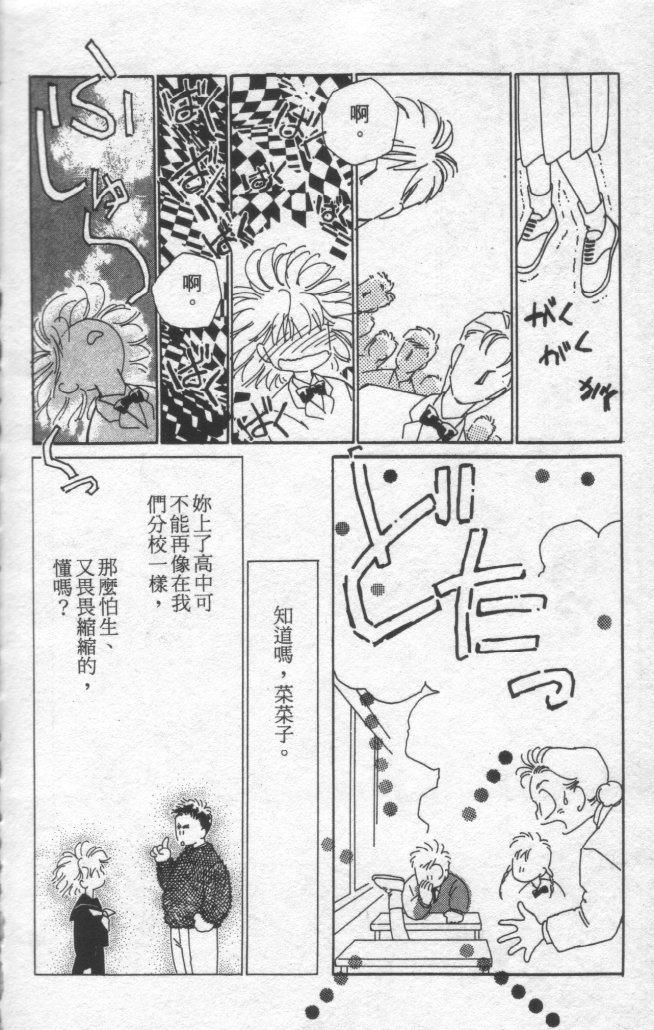 がく
がく
がく
啊。
ばく
ばく
ばく
ばく
啊。
ばく
ばく
ばく
ばく
ばく
ふしゅ〜っ
どたっ
知道嗎，菜菜子。
妳上了高中可
不能再像在我
們分校一樣，
那麼怕生、
又畏畏縮縮的，
懂嗎？